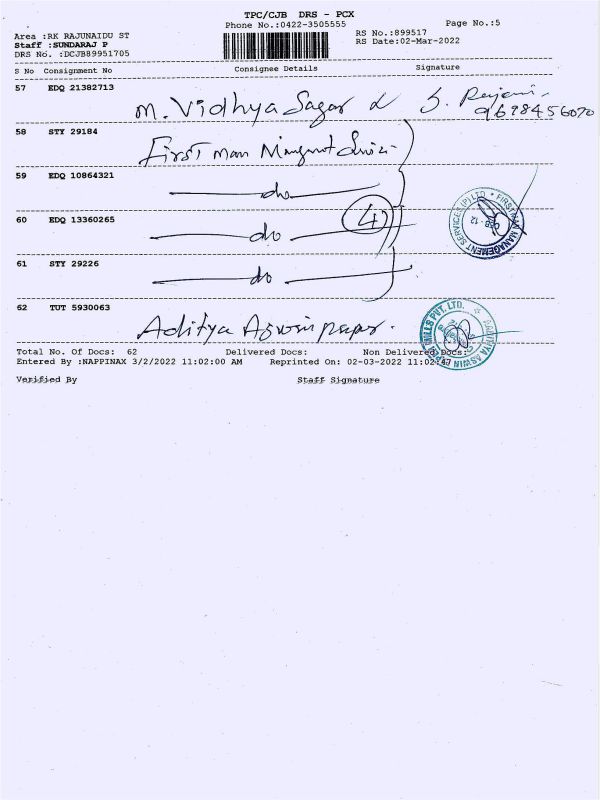 TPC/CJB DRS - PCX
Phone No.:0422-3505555
Page No.:5
Area :RK RAJUNAIDU ST
RS No.:899517
Staff :SUNDARAJ P
RS Date:02-Mar-2022
DRS No. :DCJB89951705
S No Consignment No Consignee Details Signature
57 EDQ 21382713
M. Vidhya Sagar S. Rajani
9698456070
58 STY 29184
First man
59 EDQ 10864321
do
4
60 EDQ 13360265
do
61 STY 29226
do
62 TUT 5930063
Aditya Aswin paper.
Total No. Of Docs: 62 Delivered Docs: Non Delivered Docs:
Entered By :NAPPINAX 3/2/2022 11:02:00 AM Reprinted On: 02-03-2022 11:02:47
Verified By Staff Signature
FIRSTMAN MANAGEMENT SERVICES (P) LTD
CBB - 12
ADITHYA ASWIN PAPER MILLS PVT. LTD.